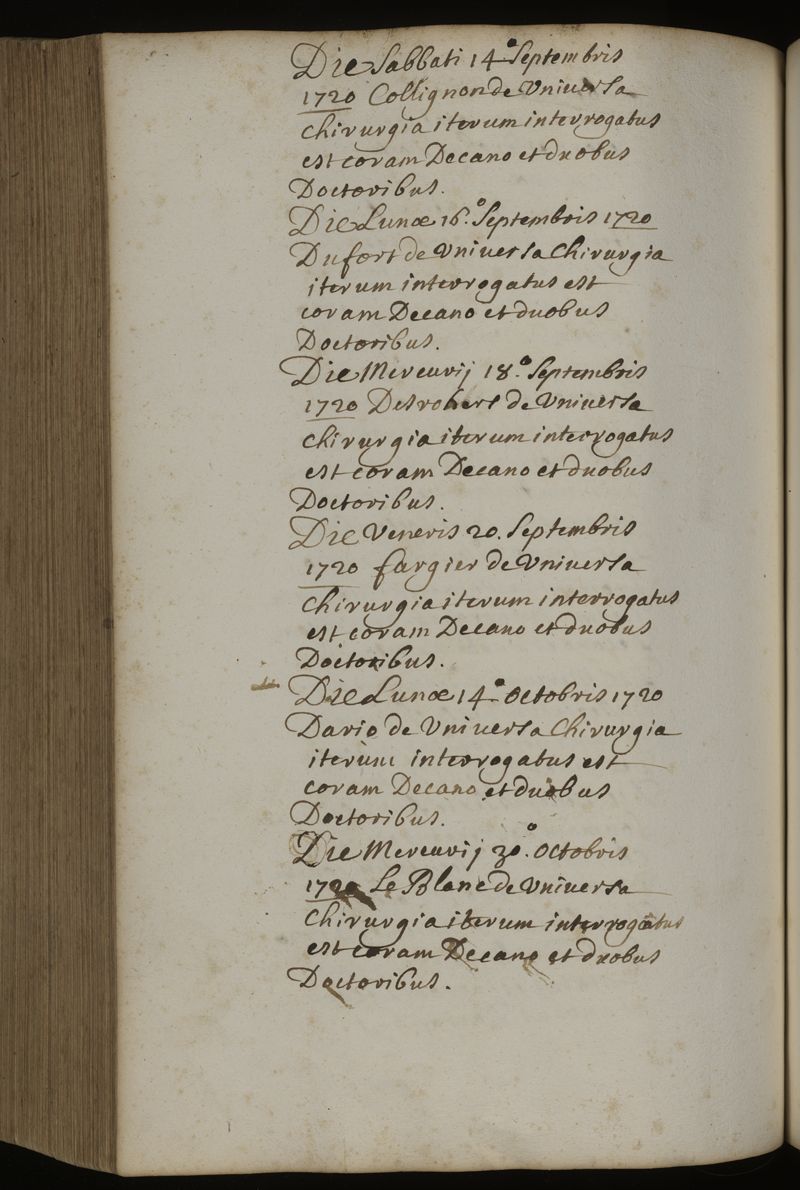 Die Sabbati 14.° Septembris
1720 Collignon de Vniuersa
Chirurgia iterum interrogatus
est coram Decano et duobus
Doctoribus.
Die Lunæ 16.° Septembris 1720
Dufort de Vniuersa Chirurgia
iterum interrogatus est
coram Decano et duobus
Doctoribus.
Die Mercurij 18.° Septembris
1720 Desrobert de Vniuersa
Chirurgia iterum interrogatus
est coram Decano et duobus
Doctoribus.
Die Veneris 20. Septembris
1720 fargier de Vniuersa
Chirurgia iterum interrogatus
est coram Decano et duobus
Doctoribus.
Die Lunæ 14.° Octobris 1720
Dario de Vniuersa Chirurgia
iterum interrogatus est
coram Decano et duobus
Doctoribus.
Die Mercurij 30.° Octobris
1720 Le Blanc de Vniuersa
Chirurgia iterum interrogatus
est coram Decano et duobus
Doctoribus.